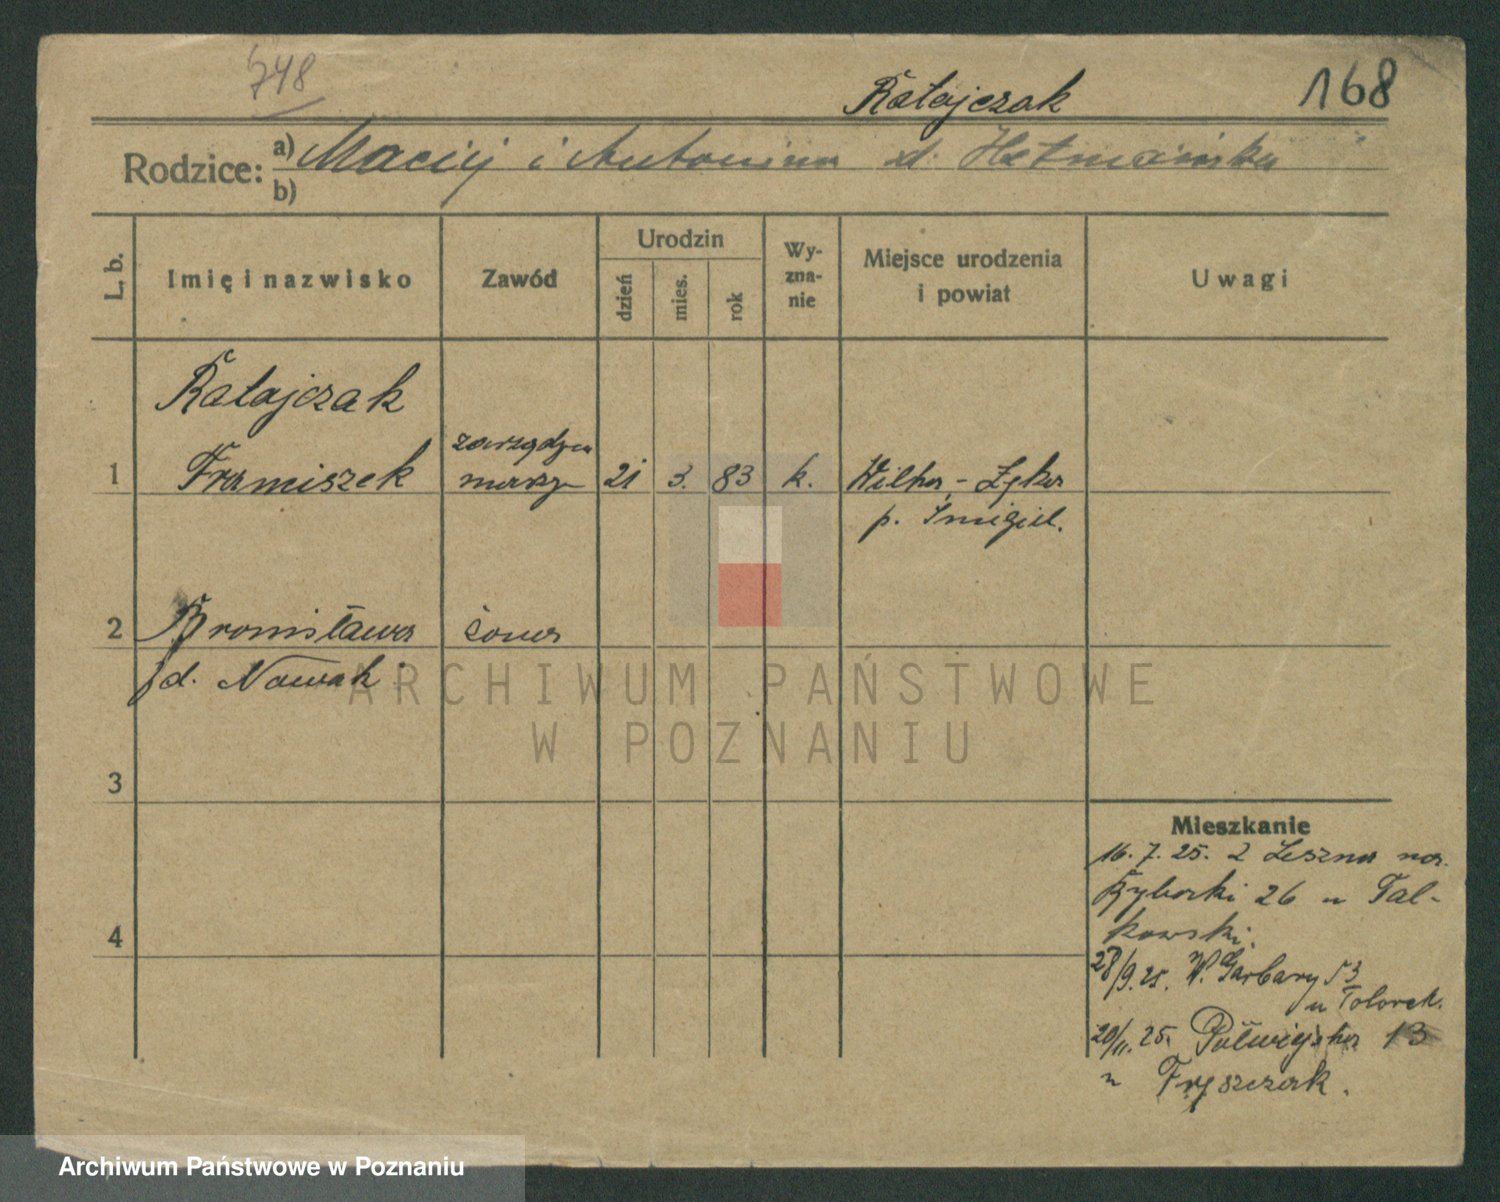 748
Ratajczak
168
Rodzice: a) Maciej i Antonina d. Hetmańska
b)
L. b.
Imię i nazwisko
Zawód
Urodzin
dzień
mies.
rok
Wy-
zna-
nie
Miejsce urodzenia
i powiat
Uwagi
Ratajczak
1 Franciszek
zarządzca
masz
21 3. 83 k. Wilka-Łęka
p. Śmigiel.
2 Bronisława żona
d. Nowak
3
4
Mieszkanie
16. 7. 25. z Leszna na
Rybaki 26 u Fal-
kowski.
28/9.25. W. Garbary 53
u
20/11. 25. Półwiejska 13
u
ARCHIWUM PAŃSTWOWE
W POZNANIU
Archiwum Państwowe w Poznaniu